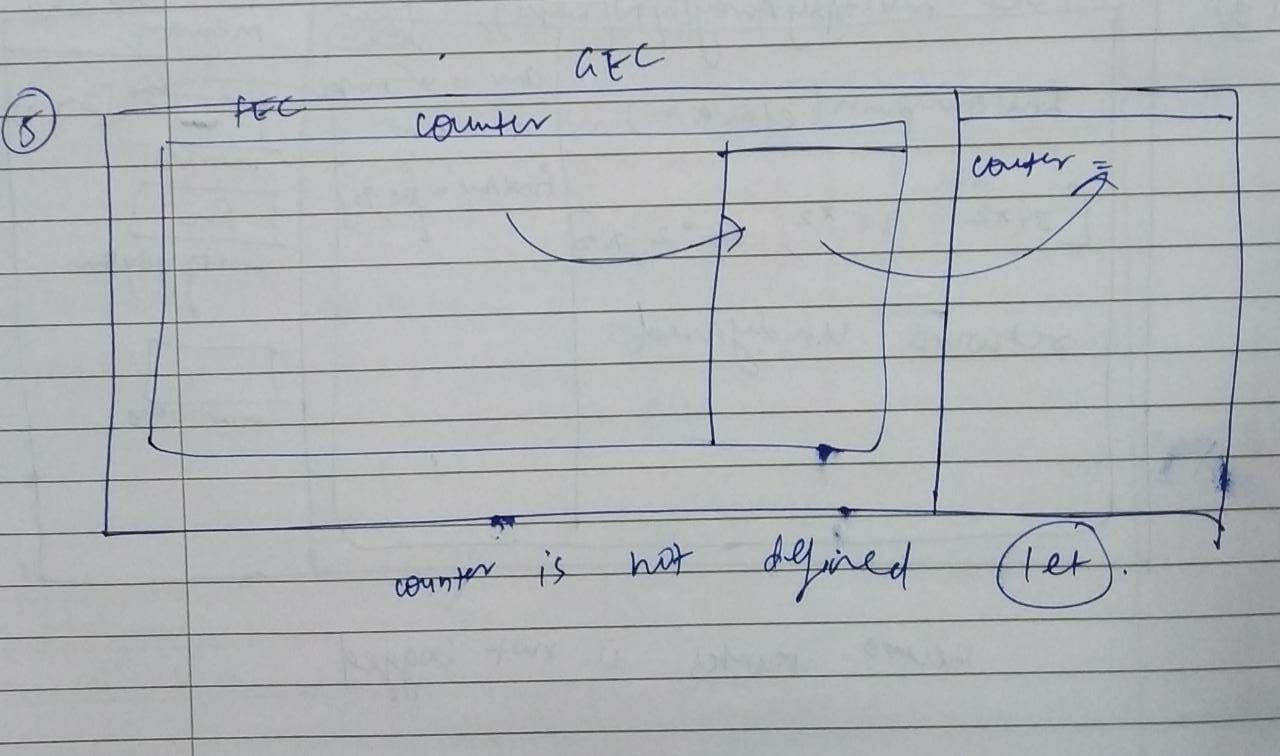 GEC
5
FEC
counter
couter =
counter is not defined let.